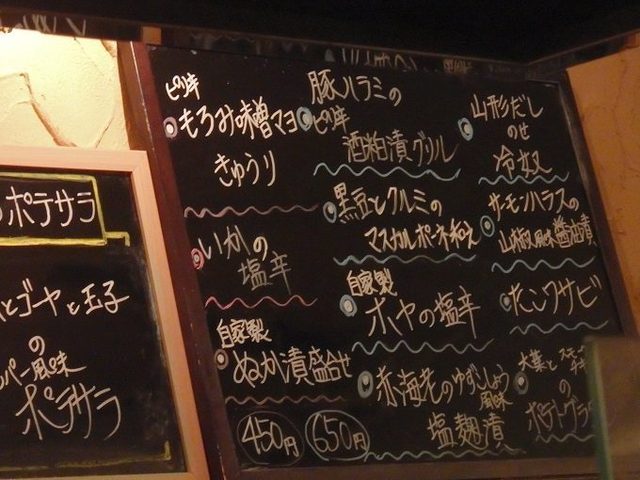 ポテサラ
とゴーヤと玉子
の
風味
ポテサラ
ピリ辛
もろみ味噌マヨ
きゅうり
いかの
塩辛
自家製
ぬか漬盛合せ
450円
650円
豚ハラミの
ピリ辛
酒粕漬グリル
黒豆とクルミの
マスカルポーネ和え
自家製
ホヤの塩辛
赤海老のゆずこしょう
風味
塩麹漬
山形だし
のせ
冷奴
サーモンハラスの
山椒風味醤油漬
たこワサビ
大葉と
の
ポテトグラ